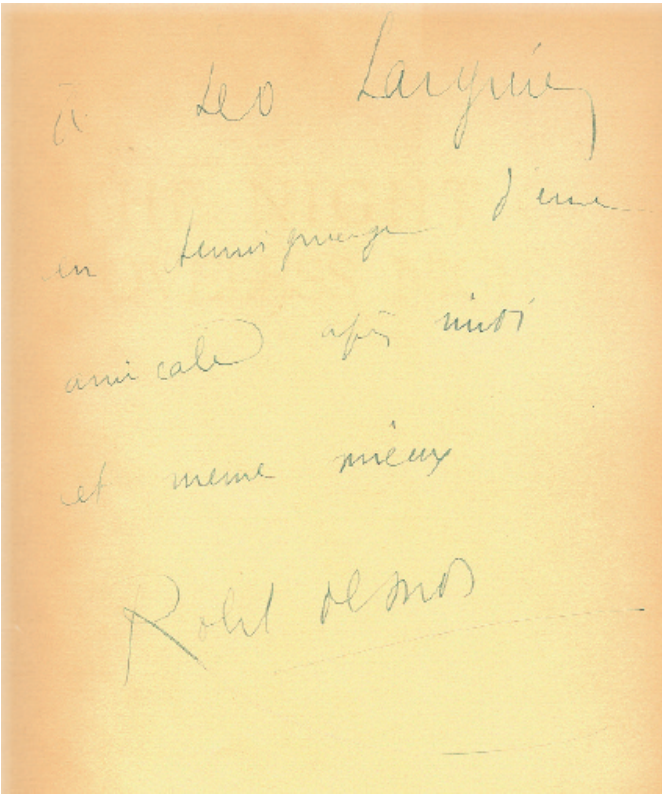 à Leo Larguier
en temoignage d'une
amicale après midi
et meme mieux
Robert Desnos
THE NIGHT